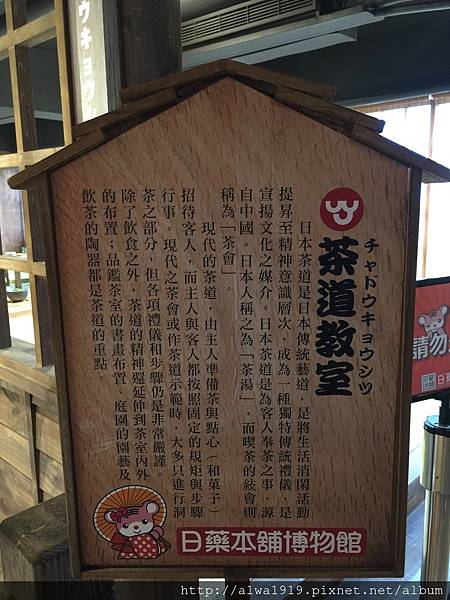 茶道教室
チャドウキョウシツ
日本茶道是日本傳統藝道，是將生活消閑活動
提昇至精神意識層次，成為一種獨特傳統禮儀，是
宣揚文化之媒介。日本茶道是為客人奉茶之事，源
自中國。日本人稱之為「茶湯」，而喫茶的敍會則
稱為「茶會」。
現代的茶道，由主人準備茶與點心（和菓子）
招待客人，而主人與客人都按照固定的規矩與步驟
行事。現代之茶會或作茶道示範時，大多只進行淍
茶之部分，但各項禮儀和步驟仍是非常嚴謹。
除了飲食之外，茶道的精神還延伸到茶室內外
的布置；品鑑茶室的書畫布置、庭園的園藝及
飲茶的陶器都是茶道的重點。
日藥本舖博物館
請勿
キョウ
http://alwa1919.pixnet.net/album